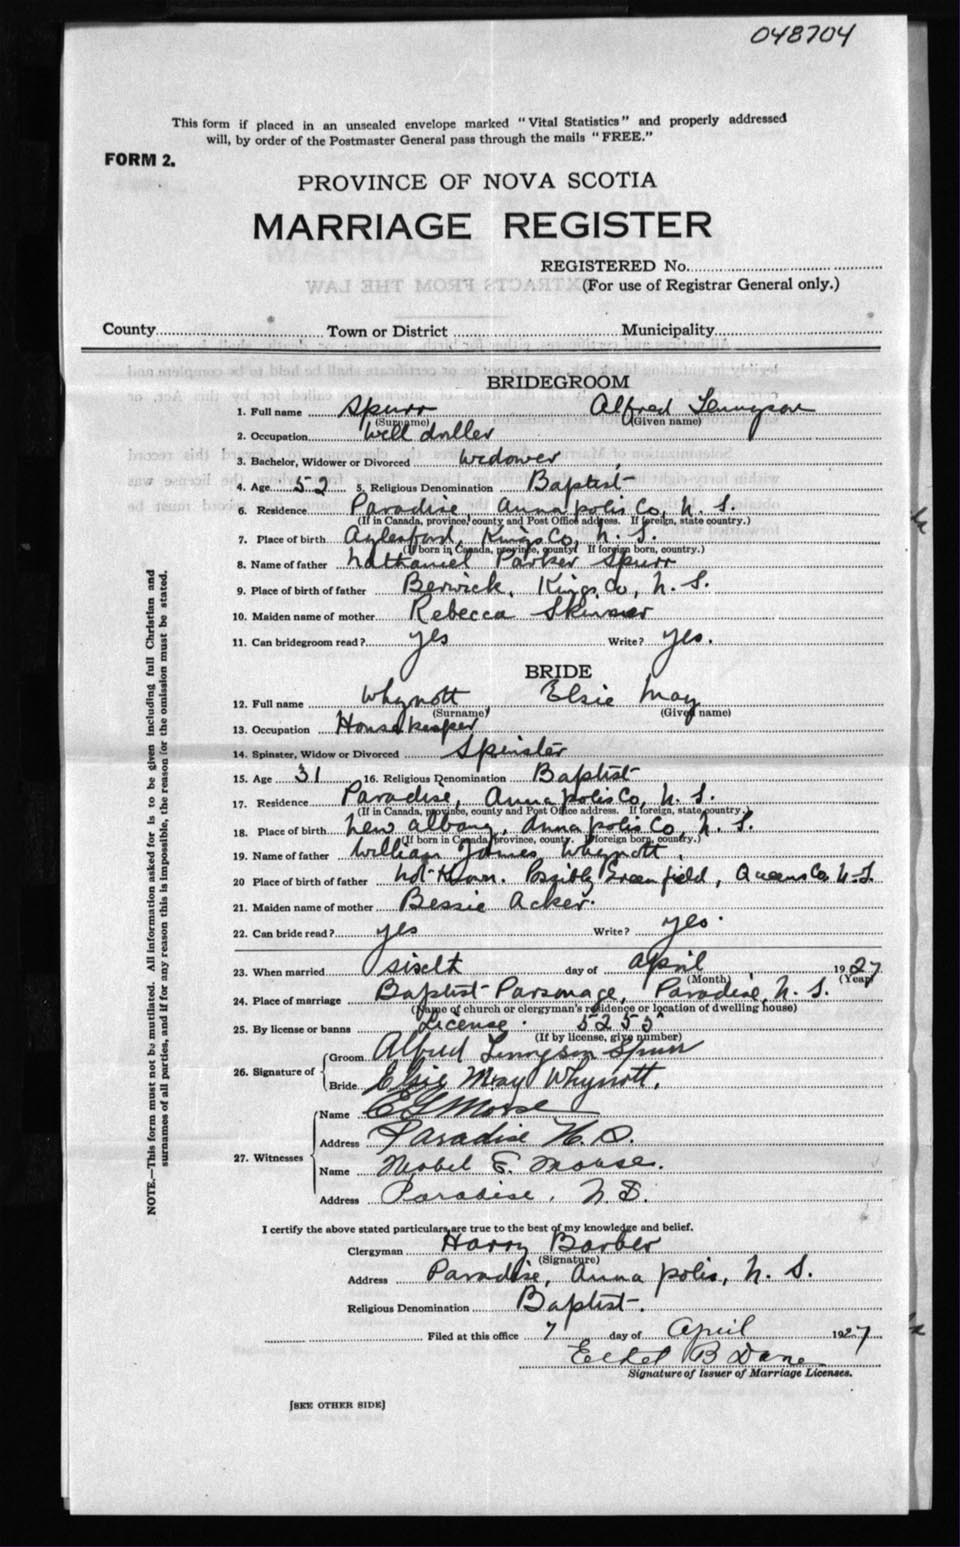 048704
This form if placed in an unsealed envelope marked "Vital Statistics" and properly addressed
will, by order of the Postmaster General pass through the mails "FREE."
FORM 2.
PROVINCE OF NOVA SCOTIA
MARRIAGE REGISTER
REGISTERED No.
(For use of Registrar General only.)
County Town or District Municipality
BRIDEGROOM
1. Full name Spurr Alfred Tennyson
(Surname) (Given name)
2. Occupation Well driller
3. Bachelor, Widower or Divorced Widower
4. Age 52 5. Religious Denomination Baptist
6. Residence Paradise, Annapolis Co, N. S.
(If in Canada, province, county and Post Office address. If foreign, state country.)
7. Place of birth Aylesford, Kings Co, N. S.
(If born in Canada, province, county If foreign born, country.)
8. Name of father Nathaniel Parker Spurr
9. Place of birth of father Berwick, Kings Co, N. S.
10. Maiden name of mother Rebecca Skinner
11. Can bridegroom read? yes Write? yes.
BRIDE
12. Full name Whynott Elsie May
(Surname) (Given name)
13. Occupation Housekeeper
14. Spinster, Widow or Divorced Spinster
15. Age 31 16. Religious Denomination Baptist
17. Residence Paradise, Annapolis Co, N. S.
(If in Canada, province, county and Post Office address. If foreign, state country.)
18. Place of birth New Albany, Annapolis Co, N. S.
(If born in Canada, province, county. If foreign born, country.)
19. Name of father William James Whynott.
20 Place of birth of father Not Known. Possibly Greenfield, Queens Co. N-S.
21. Maiden name of mother Bessie Acker.
22. Can bride read? yes Write? yes.
23. When married sixth day of April 1927
(Month) (Year)
24. Place of marriage Baptist Parsonage, Paradise, N. S.
(Name of church or clergyman's residence or location of dwelling house)
25. By license or banns License. 5255
(If by license, give number)
26. Signature of Groom Alfred Tennyson Spurr
Bride Elsie May Whynott.
27. Witnesses Name E G Morse
Address Paradise N. S.
Name Mabel E. Morse.
Address Paradise, N. S.
I certify the above stated particulars are true to the best of my knowledge and belief.
Clergyman Harry Barber
(Signature)
Address Paradise, Annapolis, N. S.
Religious Denomination Baptist.
Filed at this office 7 day of April 1927
Ethel B Dane
Signature of Issuer of Marriage Licenses.
[SEE OTHER SIDE]
NOTE.—This form must not be mutilated. All information asked for is to be given including full Christian and
surnames of all parties, and if for any reason this is impossible, the reason for the omission must be stated.